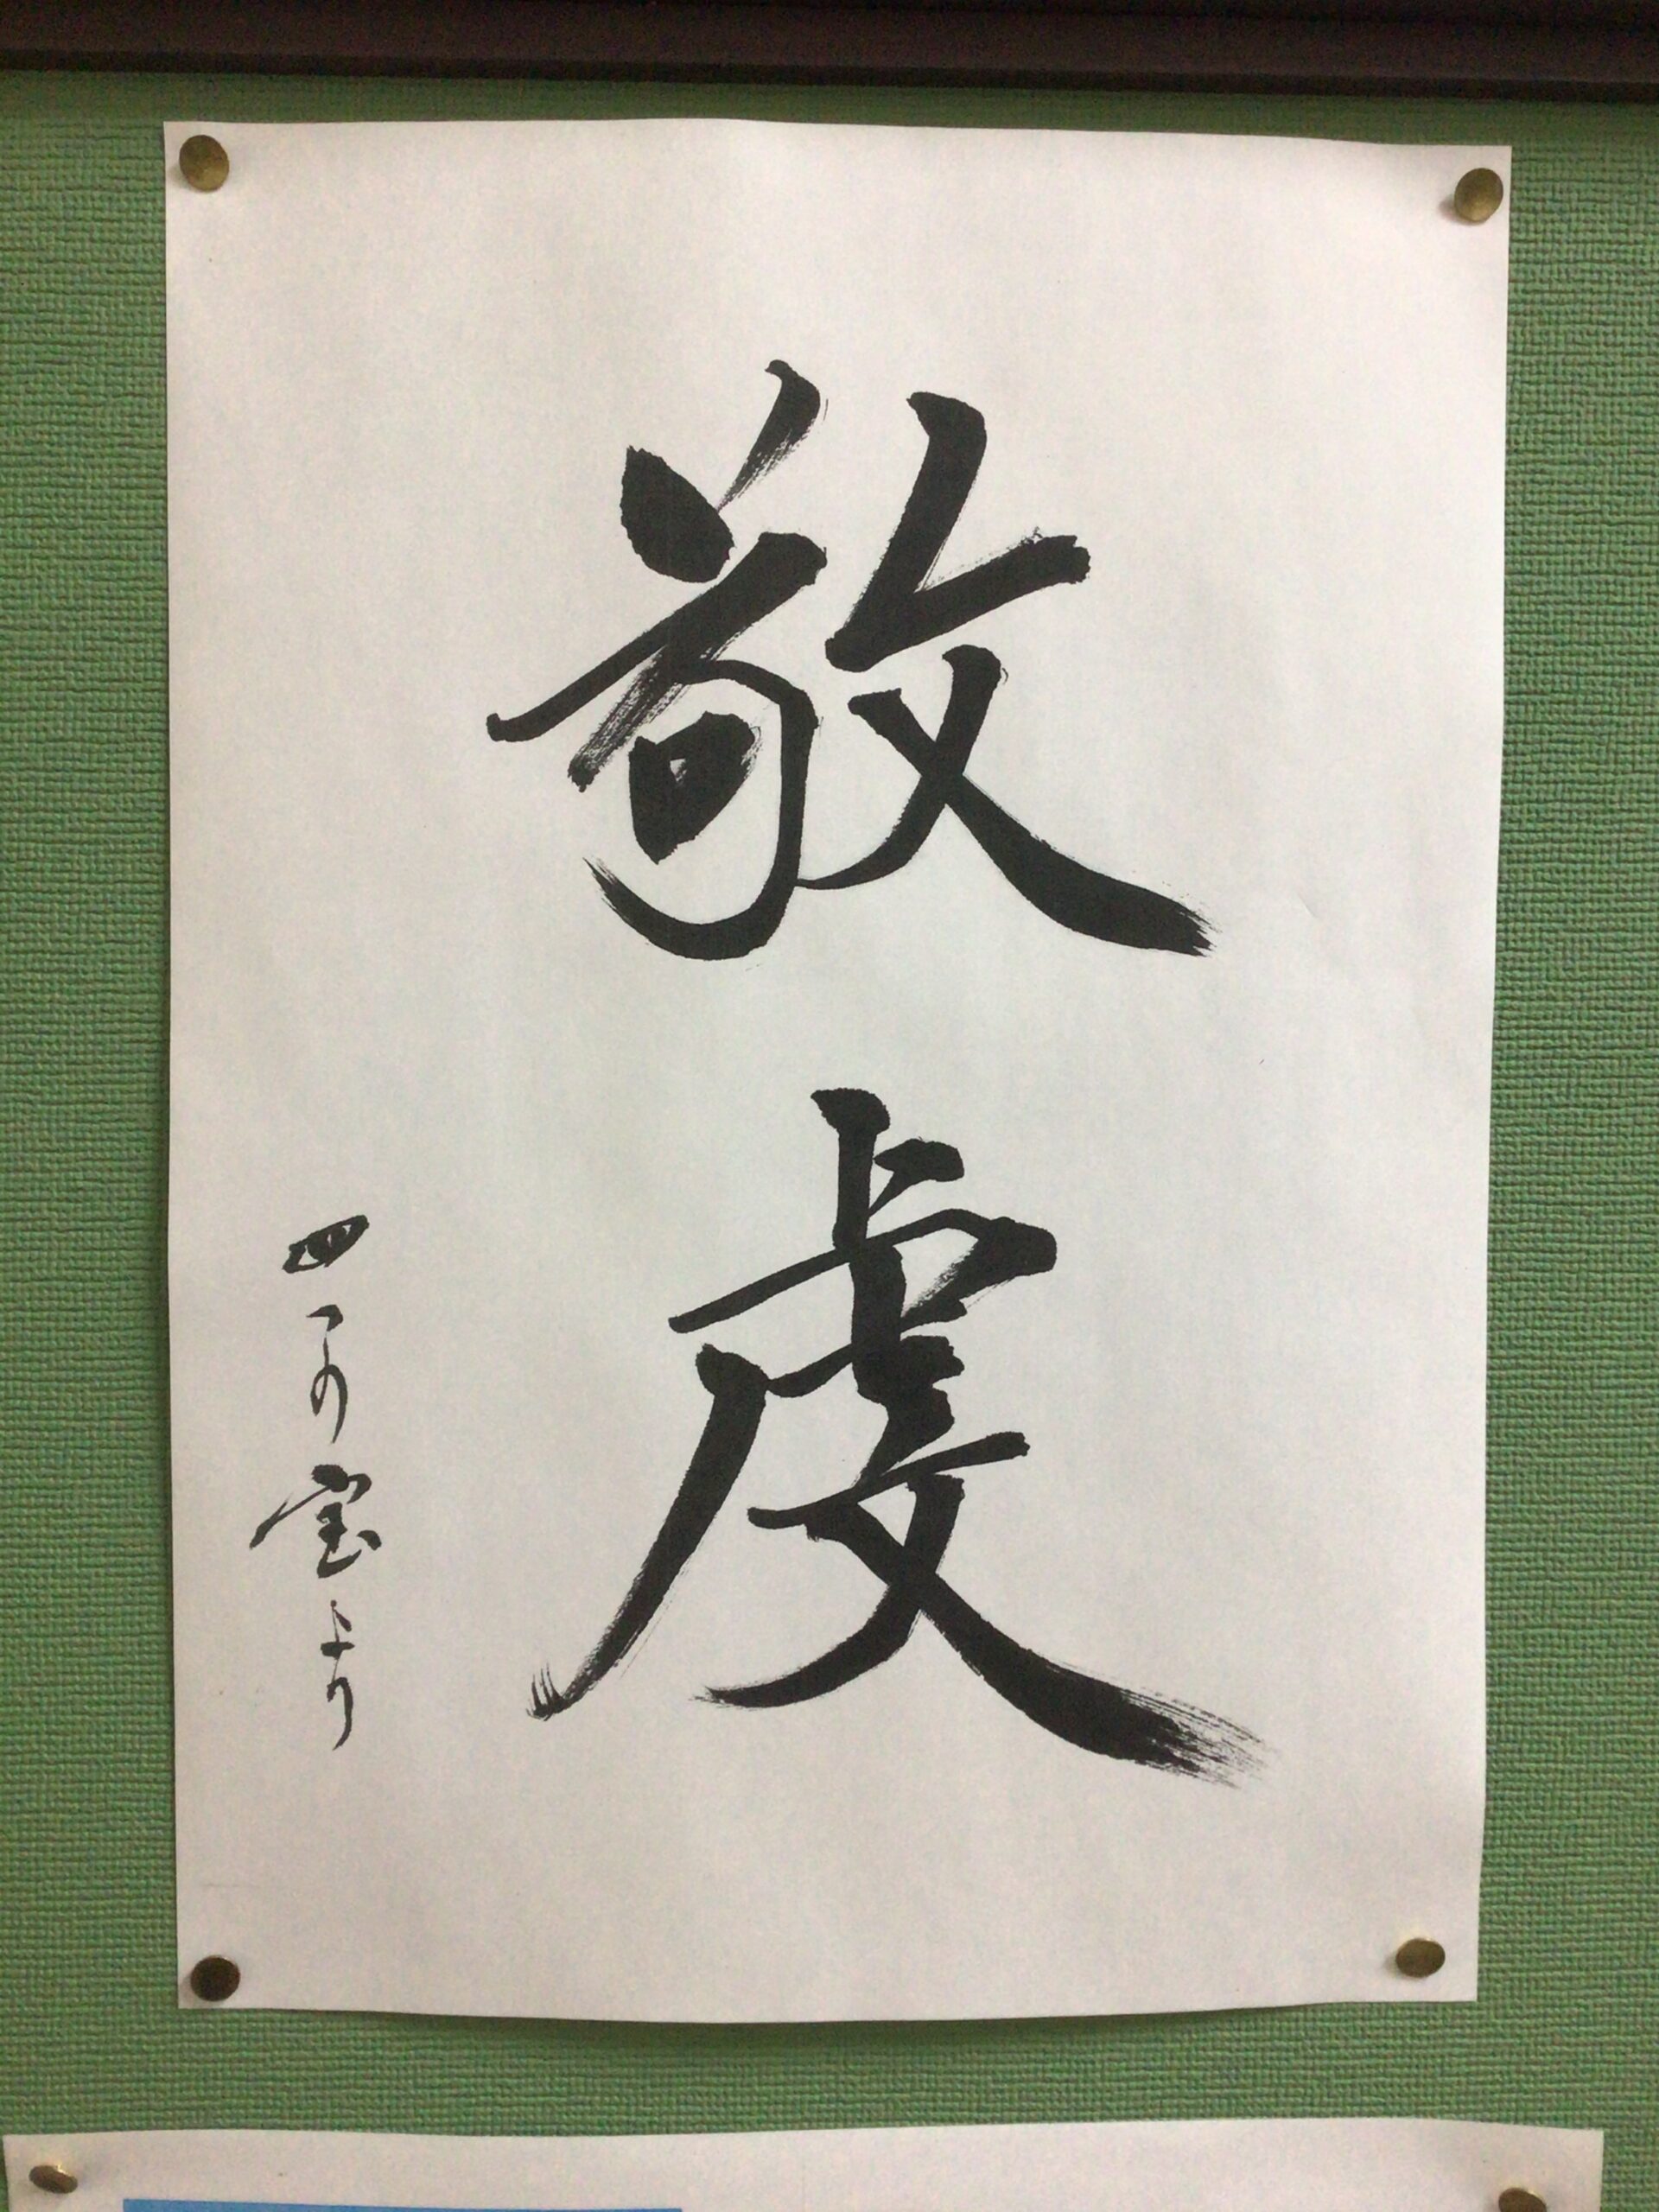 敬虔
四つの宝より